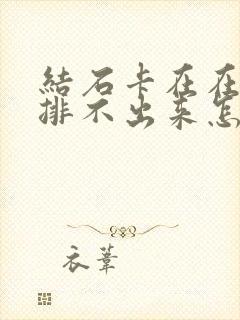 結石卡在在
排不出来怎
衣葦